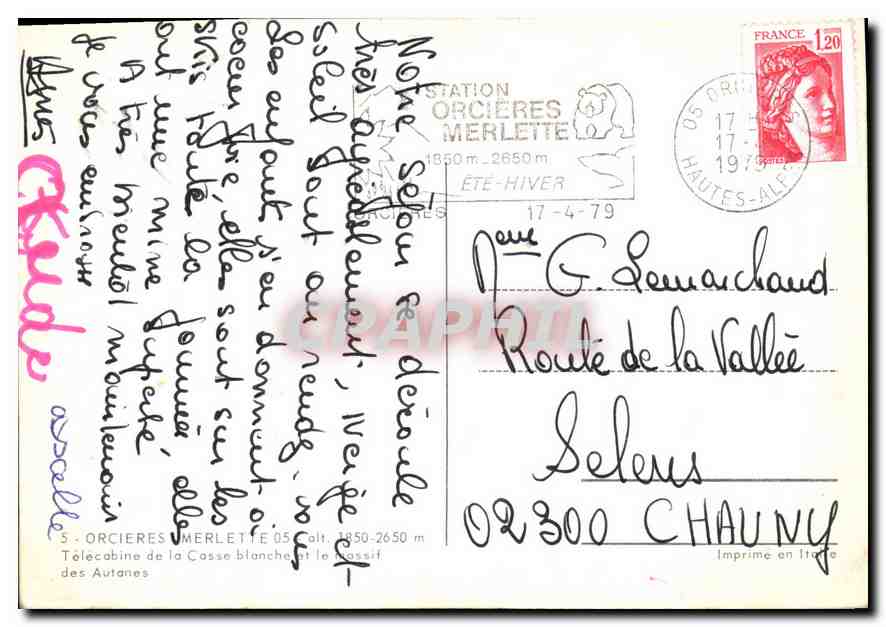 Notre séjour se déroule
très agréablement, neige et
soleil sont au rendez vous
Les enfants s'en donnent à
coeur joie, elles sont sur les
skis toute la journée elles
ont une mine superbe
A très bientôt maintenant
Je vous embrasse
STATION
ORCIÈRES
MERLETTE
1850m-2650m
ÉTÉ-HIVER
ORCIERES 17-4-79
05
17 H
17
HAUTES-ALP
FRANCE 1,20
POSTES
Mme G. Lemarchand
Route de la Vallée
Selens
02300 CHAUNY
CPAPHIL
5 - ORCIERES MERLETTE 05 - alt. 1850-2650 m
Télécabine de la Casse blanche et le massif
des Autanes
Imprimé en Italie